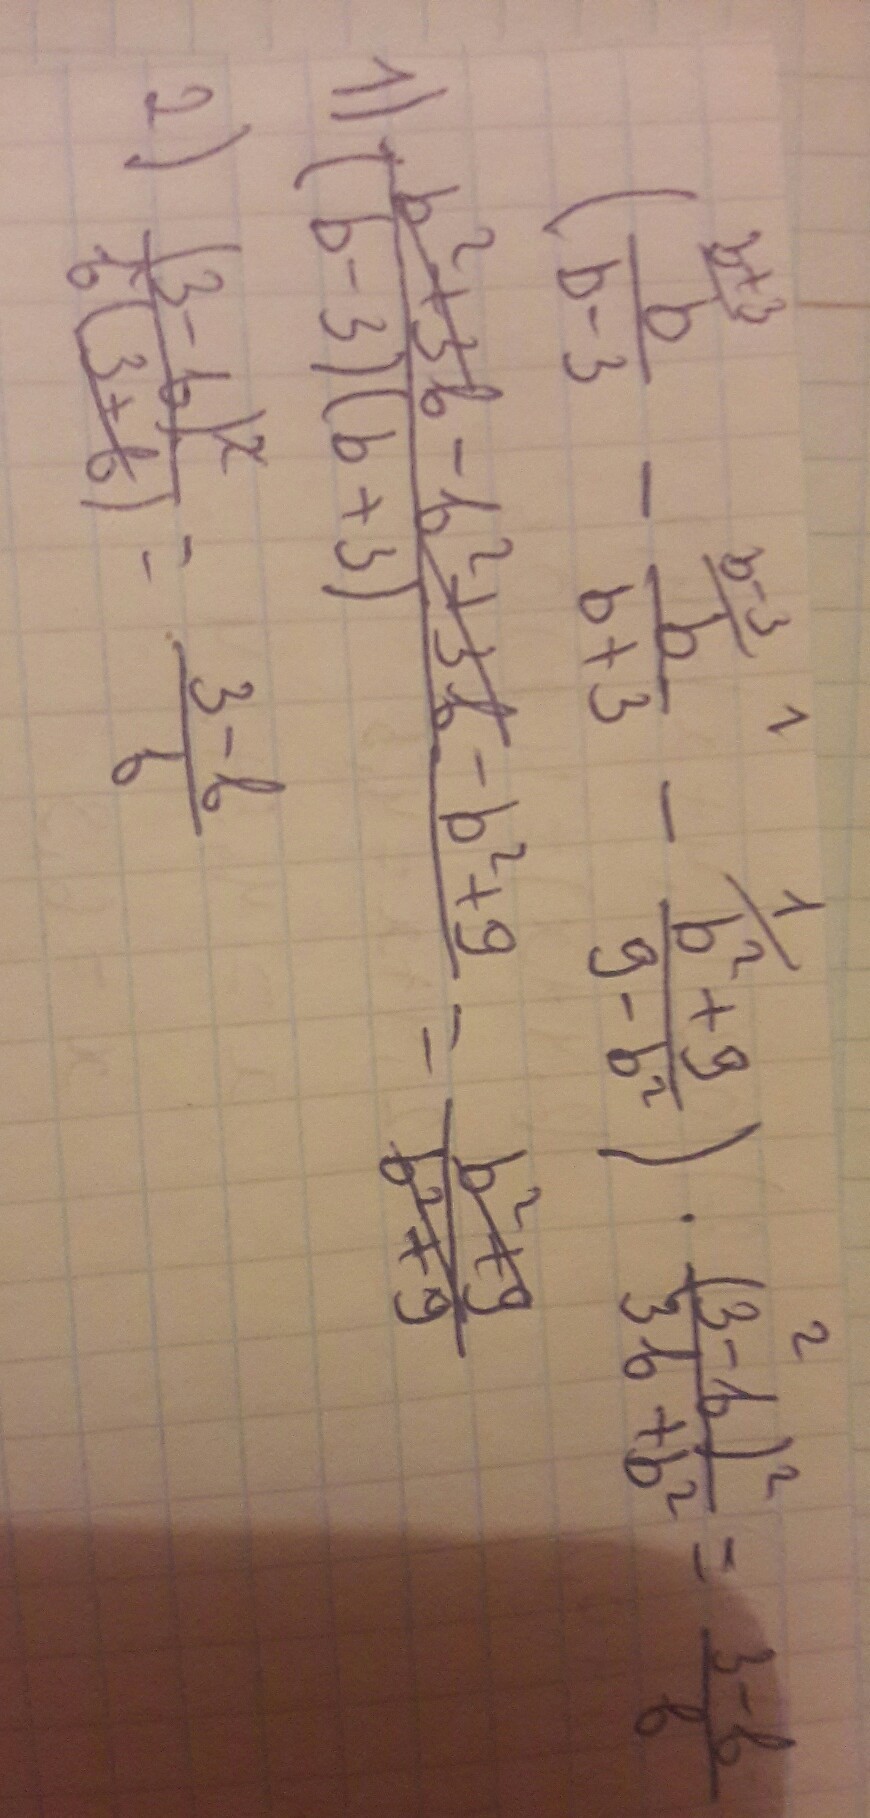 b+3 b-3 1 1 2
( b/(b-3) - b/(b+3) - (b²+9)/(9-b²) ) · (3-b)²/(3b+b²) = (3-b)/b
1) (b²+3b-b²+3b-b²+9)/((b-3)(b+3)) = (b²+9)/(b²+9)
2) (3-b)²/(b(3+b)) = (3-b)/b